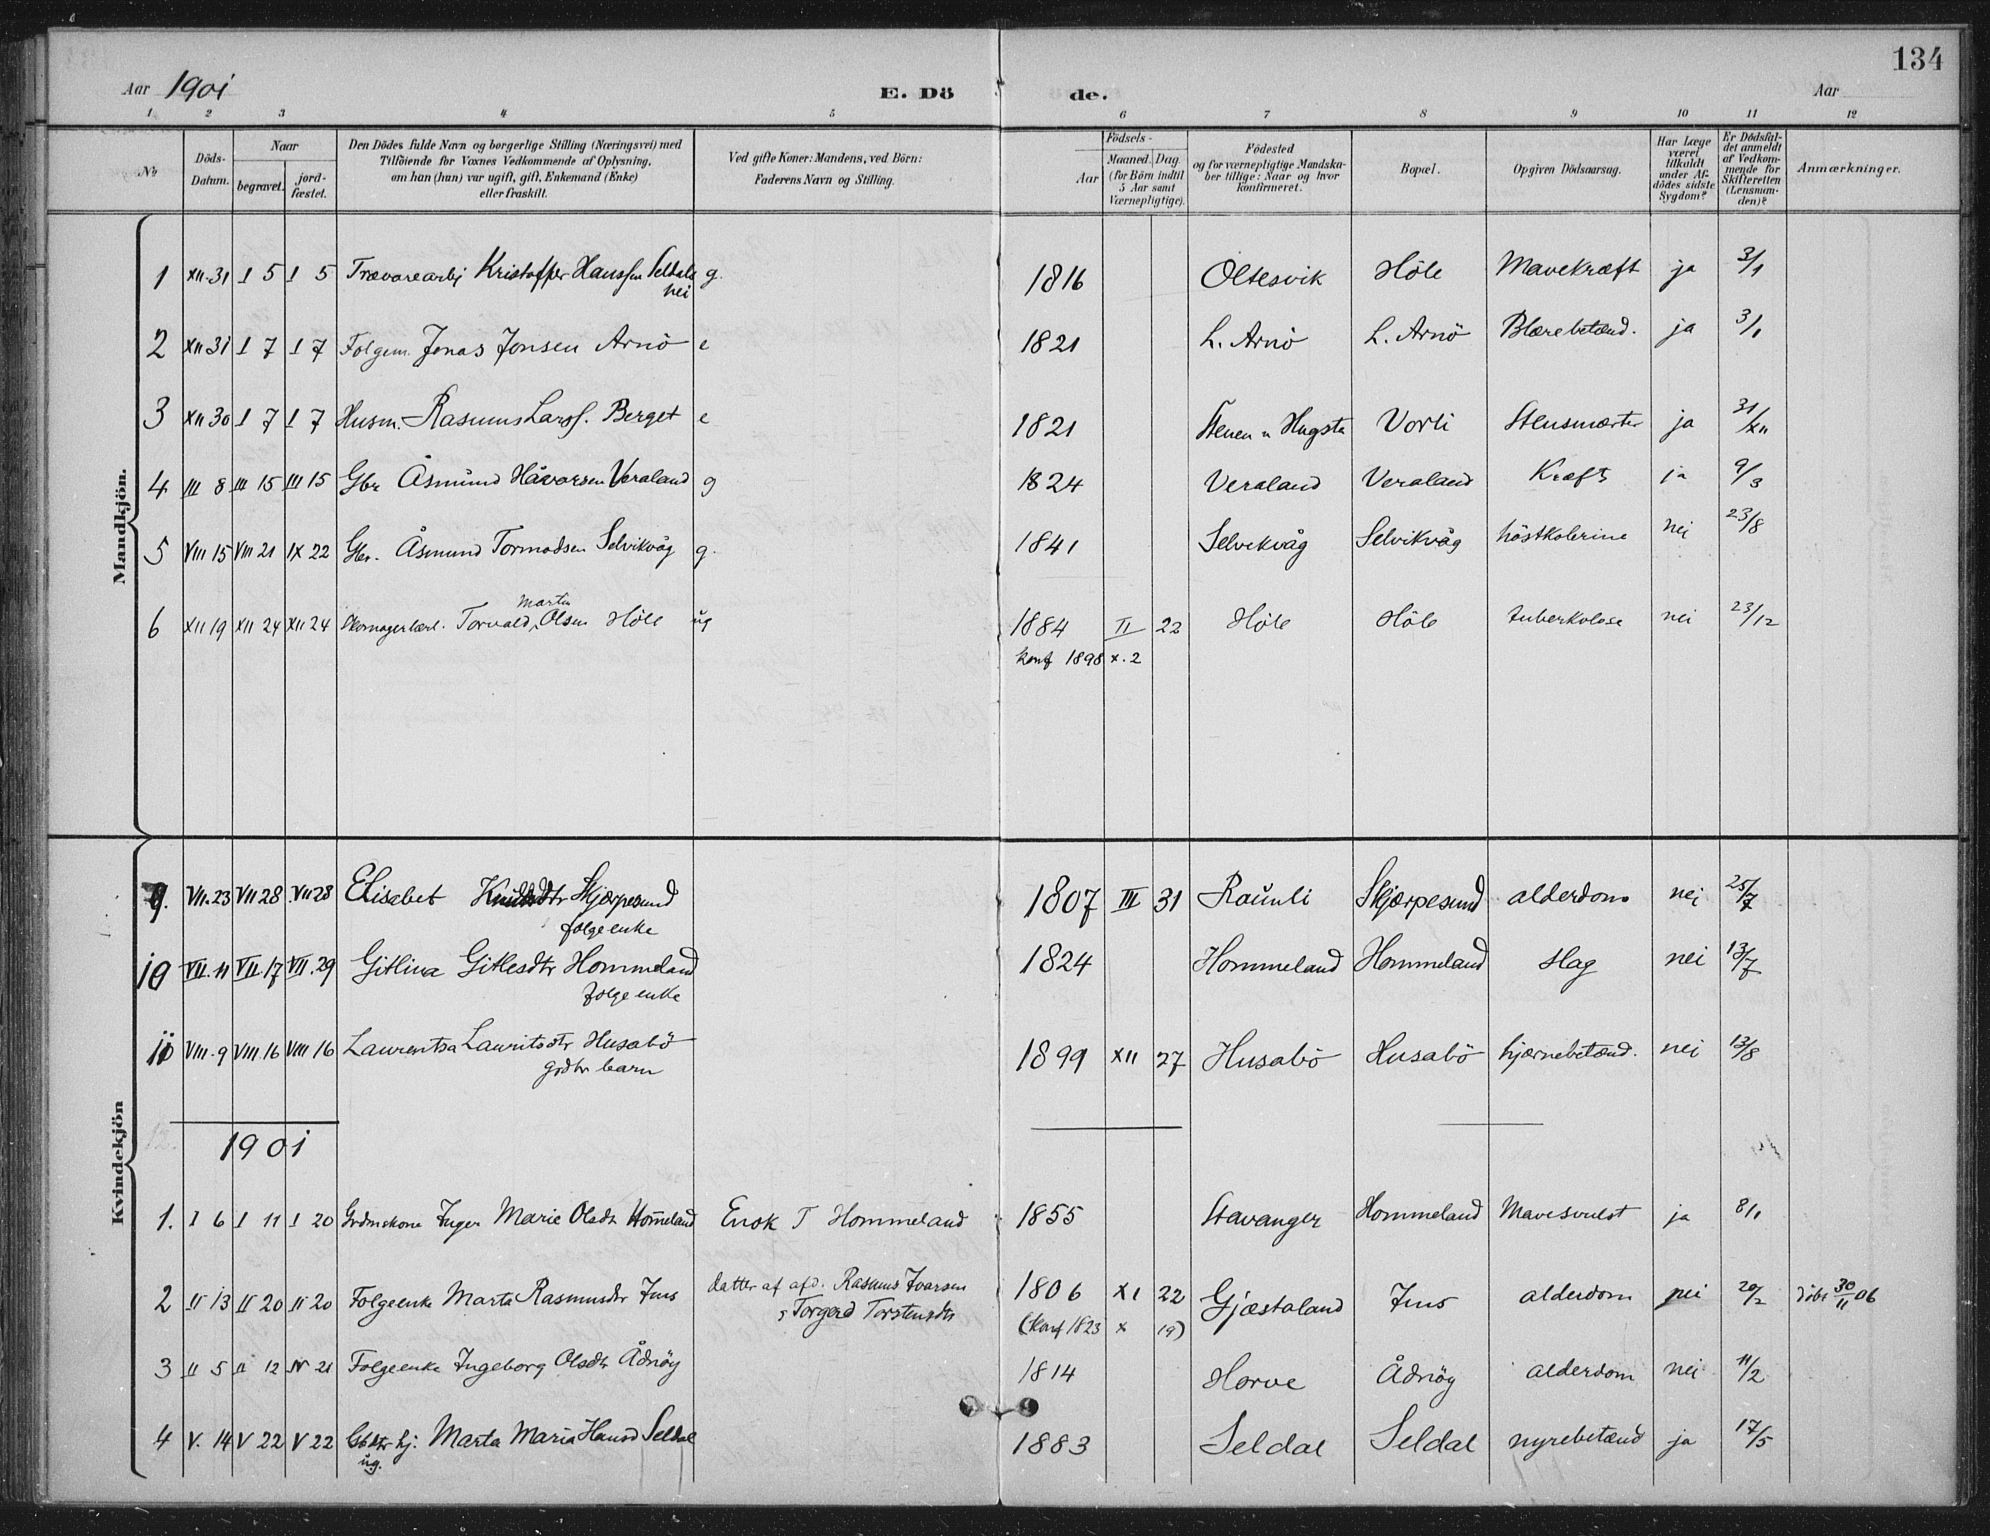 134
Aar 1901 E. Dö de. Aar
1 2 3 4 5 6 7 8 9 10 11 12
No Döds-Datum. Naar begravet. jord-fæstet. Den Dödes fulde Navn og borgerlige Stilling (Næringsvei) med Tilföiende for Voxnes Vedkommende af Oplysning, om han (hun) var ugift, gift, Enkemand (Enke) eller fraskilt. Ved gifte Koner: Mandens, ved Börn: Faderens Navn og Stilling. Födsels- Aar Maaned. Dag. (for Börn indtil 5 Aar samt Værnepligtige). Födested og for værnepligtige Mandska-ber tillige: Naar og hvor konfirmeret. Bopæl. Opgiven Dödsaarsag. Har Læge været tilkaldt under Af-dödes sidste Sygdom? Er Dödsfal-det anmeldt af Vedkom-mende for Skifteretten (Lensman-den)? Anmærkninger.
Mandkjön.
1 XII.31 I 5 I 5 Trævarearbj Kristoffer Hanssen Seldal g. 1816 Oltesvik Höle Mavekræft ja 3/1
nei
2 XII 31 I 7 I 7 Folgem. Jonas Jonsen Arnö e 1821 L. Arnö L. Arnö Blærebetænd. ja 3/1
3 XII 30 I 7 I 7 Husm. Rasmus Larss. Berget e 1821 Stenen u Hugsta Vorli Stensmærter ja 31/XII
4 III 8 III 15 III 15 Gbr Åsmund Håvorsen Veraland g 1824 Veraland Veraland Kræft ja 9/3
5 VIII 15 VIII 21 IX 22 Gbr. Åsmund Tormodsen Selvikvåg g. 1841 Selvikvåg Selvikvåg höstkolerine nei 23/8
Martin
6 XII 19 XII 24 XII 24 Skomagerlærl. Torvald Olsen Höle ug 1884 II 22 Höle Höle tuberkulose nei 23/12
konf 1898 X. 2
Kvindekjön
9. VII.23 VII 28 VII 28 Elisabet Knudsdtr Skjærpesund 1807 III 31 Raünli Skjærpesund alderdom nei 25/7
folgeenke
10 VII.11 VII.17 VII.29 Gitlina Gitlesdtr Hommeland 1824 Hommeland Hommeland slag nei 13/7
folgeenke
11 VIII.9 VIII 16 VIII 16 Laurentsa Lauritsdtr Husabö 1899 XII 27 Husabö Husabö hjærnebetænd. nei 13/8
grdbr barn
1901
1. I 6 I 11 I 20 Grdmskone Inger Marie Olsdtr Hom̄eland Enok T Hommeland 1855 Stavanger Hommeland Mavesvulst ja 8/1
2 II 13 II 20 II 20 Folgeenke Marta Rasmusdtr Ims datter af afd. Rasmus Ivarsen 1806 XI 22 Gjæstaland Ims alderdom nei 20/2 döbt 30/11 06
s Torgerd Torstensdtr (konf 1823 X 19)
3 II 5 II 12 IV 21 Folgeenke Ingeborg Olsdtr Ådnöy 1814 Horve Ådnöy alderdom nei 11/2
4 V. 14 V 22 V 22 Gbdtr hj. Marta Maria Hansd Seldal 1883 Seldal Seldal nyrebetænd ja 17/5
ug.